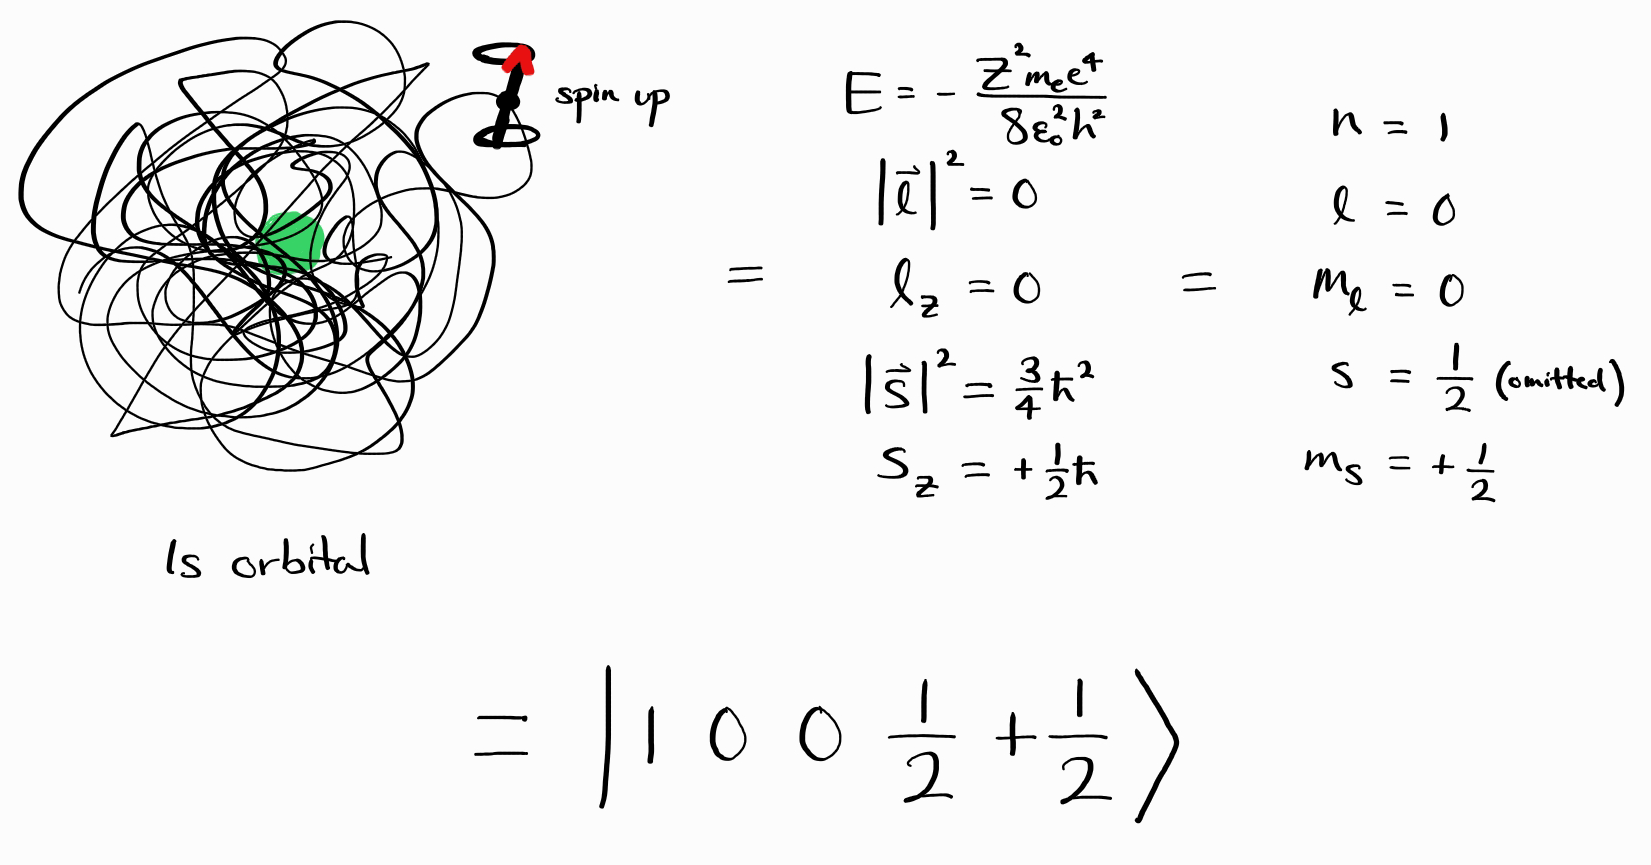 spin up
1s orbital
=
E = - Z²mₑe⁴ / 8ε₀²h²
|l⃗|² = 0
l_z = 0
|s⃗|² = 3/4 ħ²
s_z = + 1/2 ħ
=
n = 1
l = 0
m_l = 0
s = 1/2 (omitted)
m_s = + 1/2
= | 1 0 0 1/2 + 1/2 ⟩